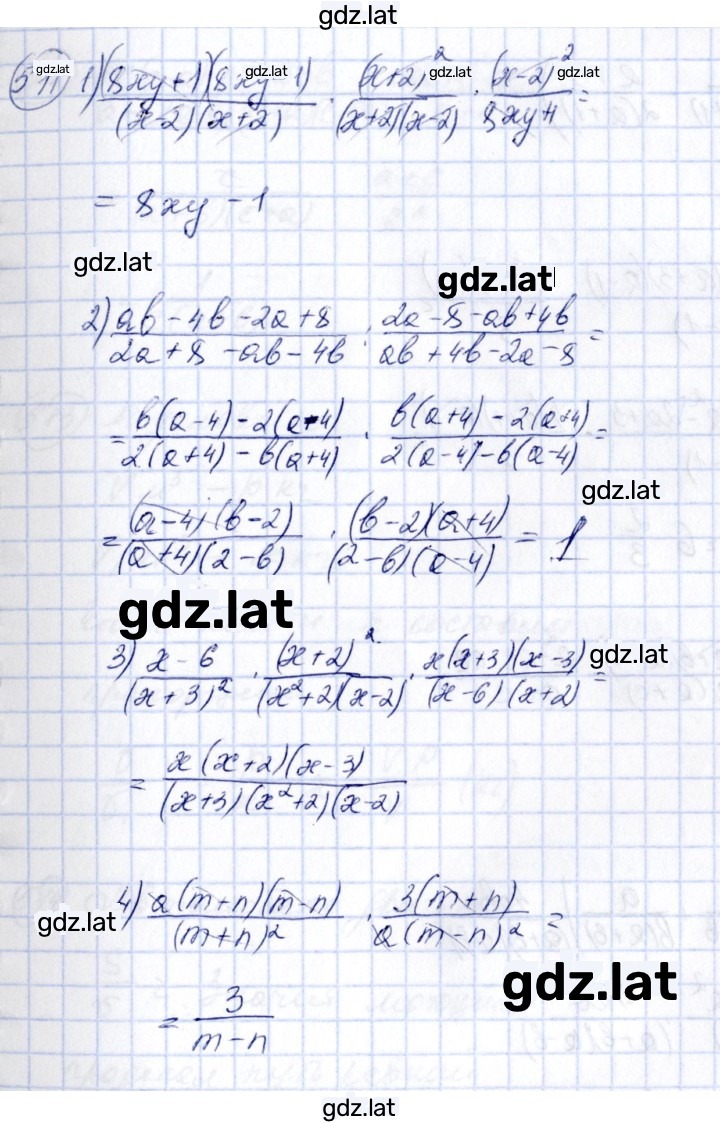 gdz.lat
511 gdz.lat 1) (8xy+1)(8xy-1)/(x-2)(x+2) · (x+2)²/(x+2)(x-2) · (x-2)²/8xy+1 =
gdz.lat gdz.lat
= 8xy - 1
gdz.lat
gdz.lat
2) ab - 4b - 2a + 8/2a + 8 - ab - 4b : 2a - 8 - ab + 4b/ab + 4b - 2a - 8 =
= b(a-4) - 2(a-4)/2(a+4) - b(a+4) · b(a+4) - 2(a+4)/2(a-4) - b(a-4) =
gdz.lat
= (a-4)(b-2)/(a+4)(2-b) · (b-2)(a+4)/(2-b)(a-4) = 1
gdz.lat
3) x-6/(x+3)² · (x+2)²/(x²+2)(x-2) · x(x+3)(x-3)/(x-6)(x+2) =
gdz.lat
= x(x+2)(x-3)/(x+3)(x²+2)(x-2)
4) a(m+n)(m-n)/(m+n)² · 3(m+n)/a(m-n)² =
gdz.lat
gdz.lat
= 3/m-n
gdz.lat